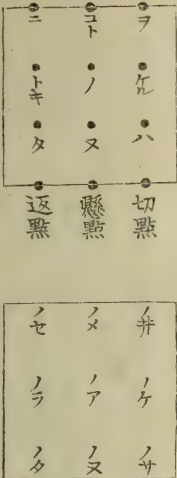 ヲ ケル ハ 切點
コト ノ ヌ 懸點
ニ トキ タ 返點
ノ井 ノケ ノサ
ノメ ノア ノヌ
ノセ ノラ ノタ